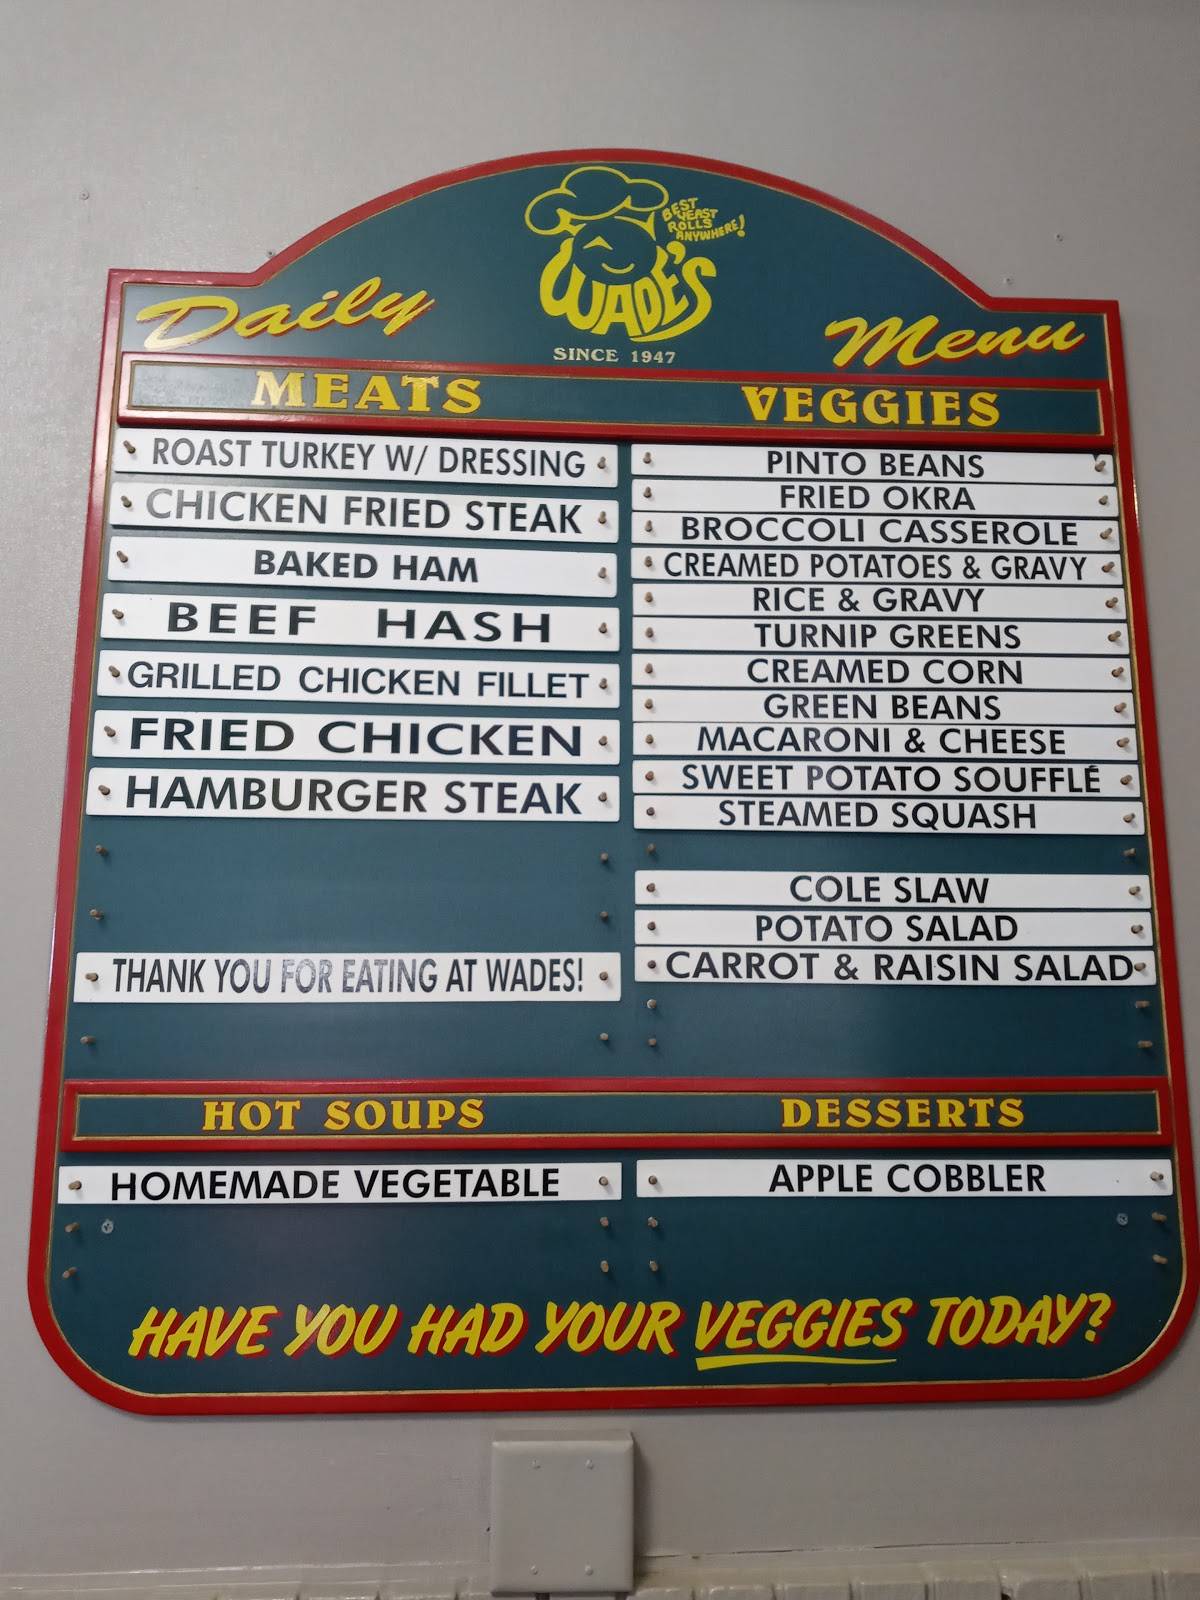 BEST
YEAST
ROLLS
ANYWHERE!
WADE'S
SINCE 1947
Daily Menu
MEATS
ROAST TURKEY W/ DRESSING
CHICKEN FRIED STEAK
BAKED HAM
BEEF HASH
GRILLED CHICKEN FILLET
FRIED CHICKEN
HAMBURGER STEAK
THANK YOU FOR EATING AT WADES!
VEGGIES
PINTO BEANS
FRIED OKRA
BROCCOLI CASSEROLE
CREAMED POTATOES & GRAVY
RICE & GRAVY
TURNIP GREENS
CREAMED CORN
GREEN BEANS
MACARONI & CHEESE
SWEET POTATO SOUFFLÉ
STEAMED SQUASH
COLE SLAW
POTATO SALAD
CARROT & RAISIN SALAD
HOT SOUPS
HOMEMADE VEGETABLE
DESSERTS
APPLE COBBLER
HAVE YOU HAD YOUR VEGGIES TODAY?